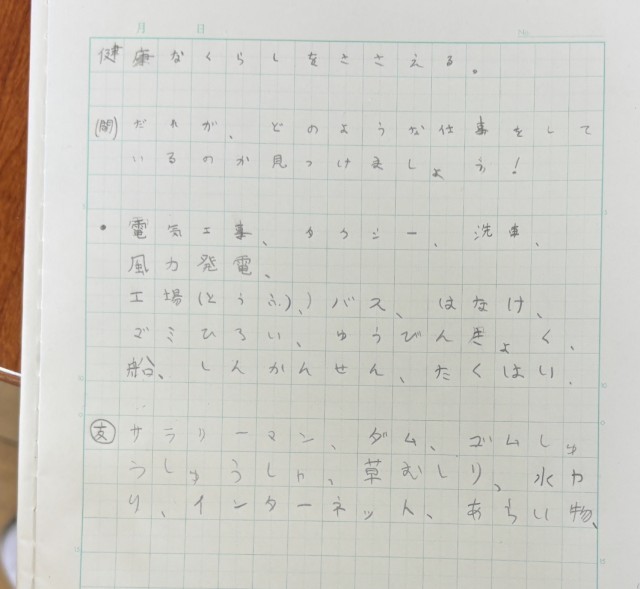 月 日 No.
健康なくらしをささえる。
(問) だれが、どのような仕事をして
いるのか見つけましょう!
・電気工事、タクシー、洗車、
風力発電、
工場(とうふ)、バス、はなけ、
ゴミひろい、ゆうびんきょく、
船、しんかんせん、たくはい、
友 サラリーマン、ダム、ゴムしゅ
うしゅうしゃ、草むしり、水や
り、インターネット、あらい物、